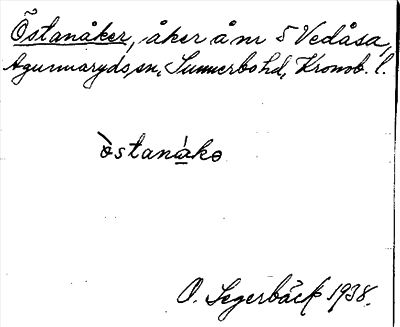 Östanåker, åker å nr 5 Vedåsa,
Agunnaryds sn, Sunnerbo hd, Kronob. l.
òstanákɘ
O. Segerbäck 1938.